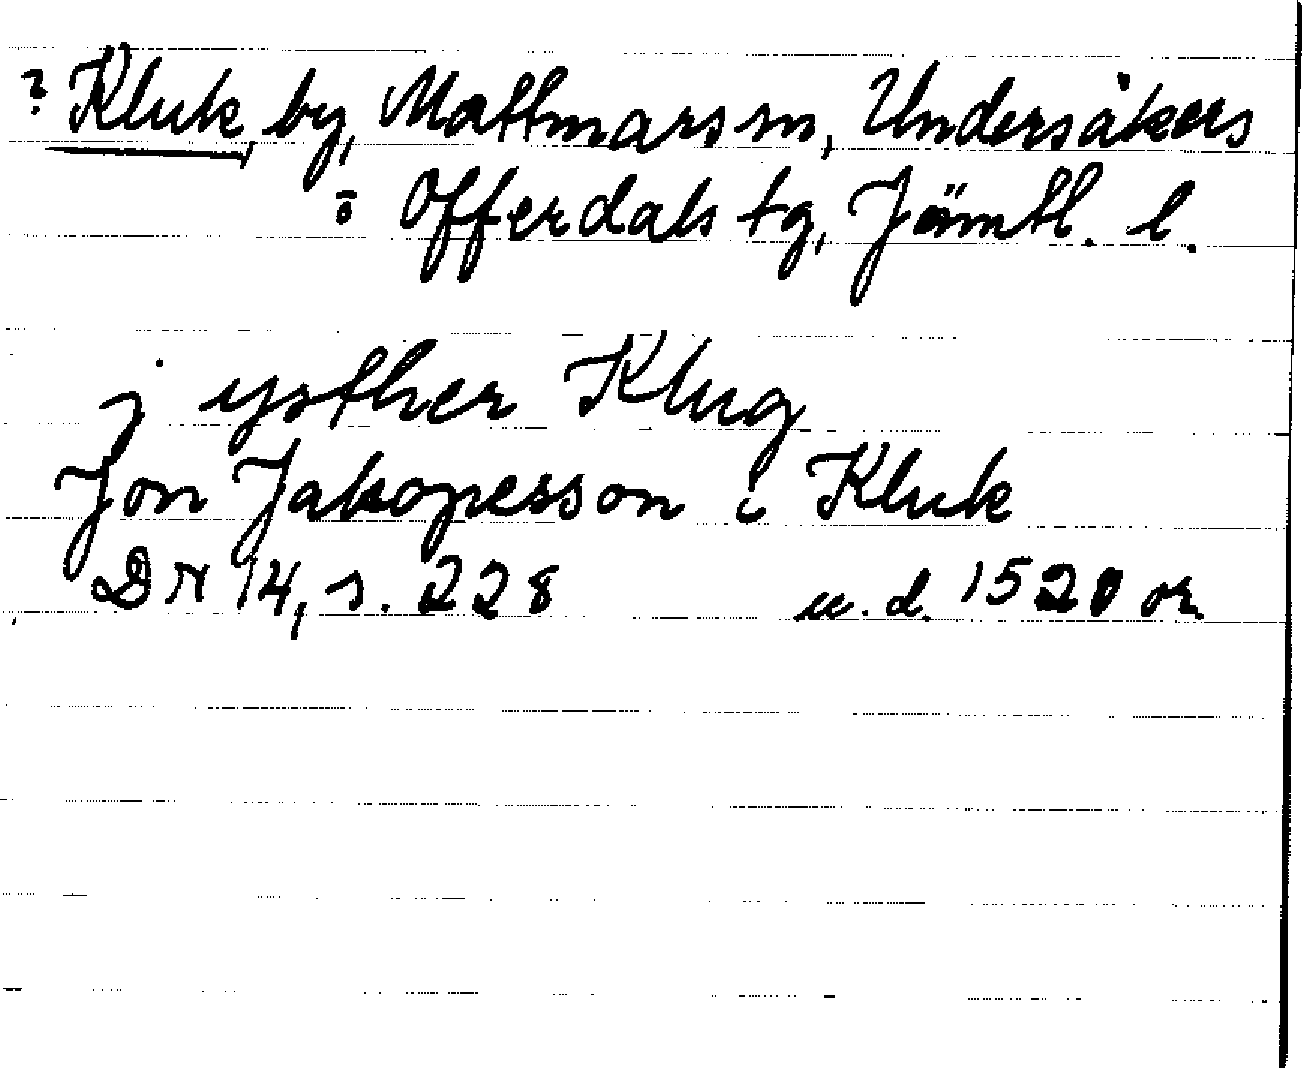 ? Kluk, by, Mattmars sn, Undersåkers
o Offerdals tg, Jämtl. l.
j ysther Klug
Jon Jakopesson i Kluk
DN 14, s. 228 u. d. 1520 or.